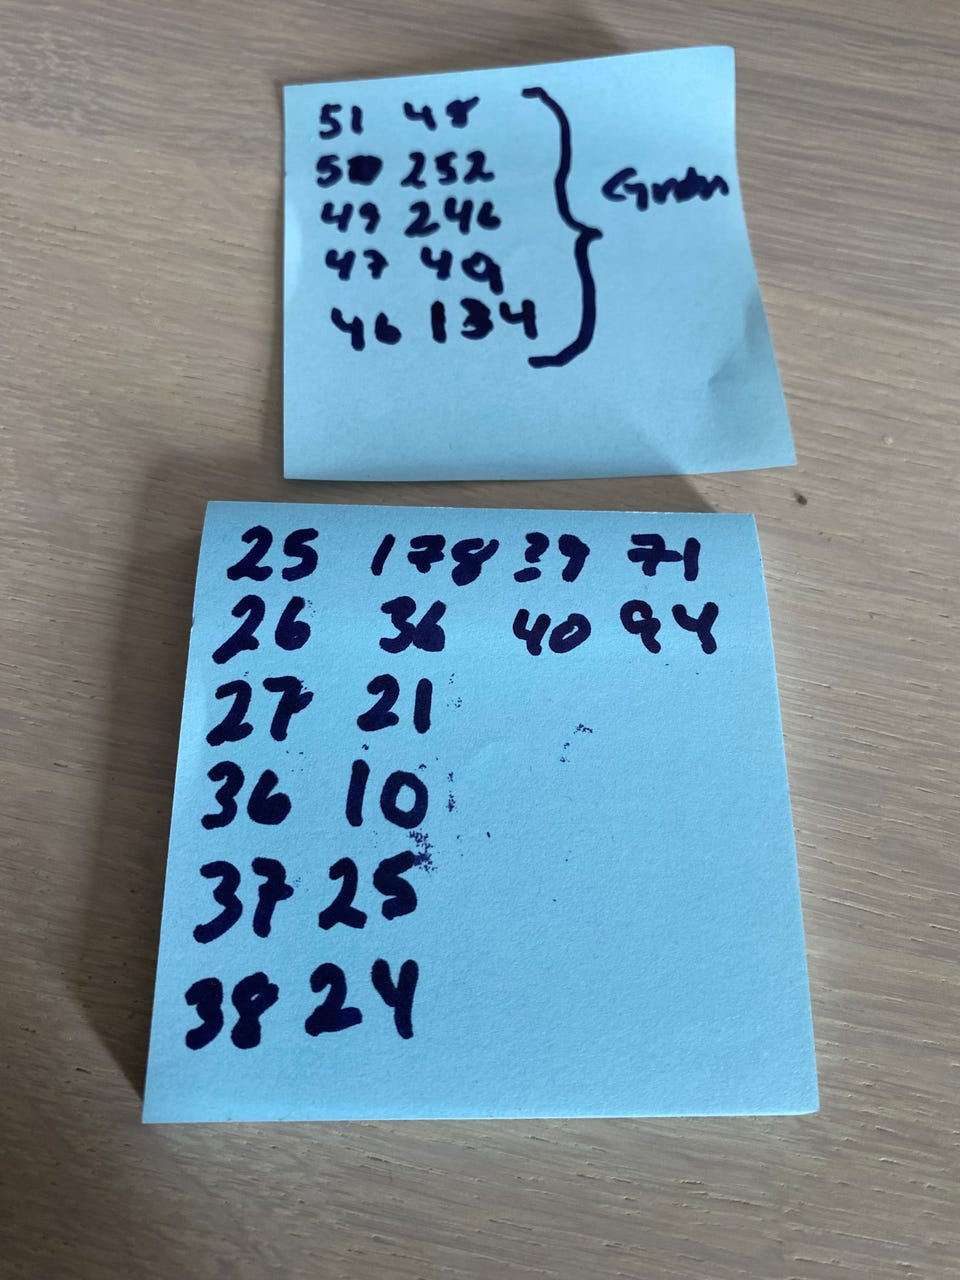 51 48
50 252
49 246
47 49
46 134
25 178 39 71
26 36 40 94
27 21
36 10
37 25
38 24